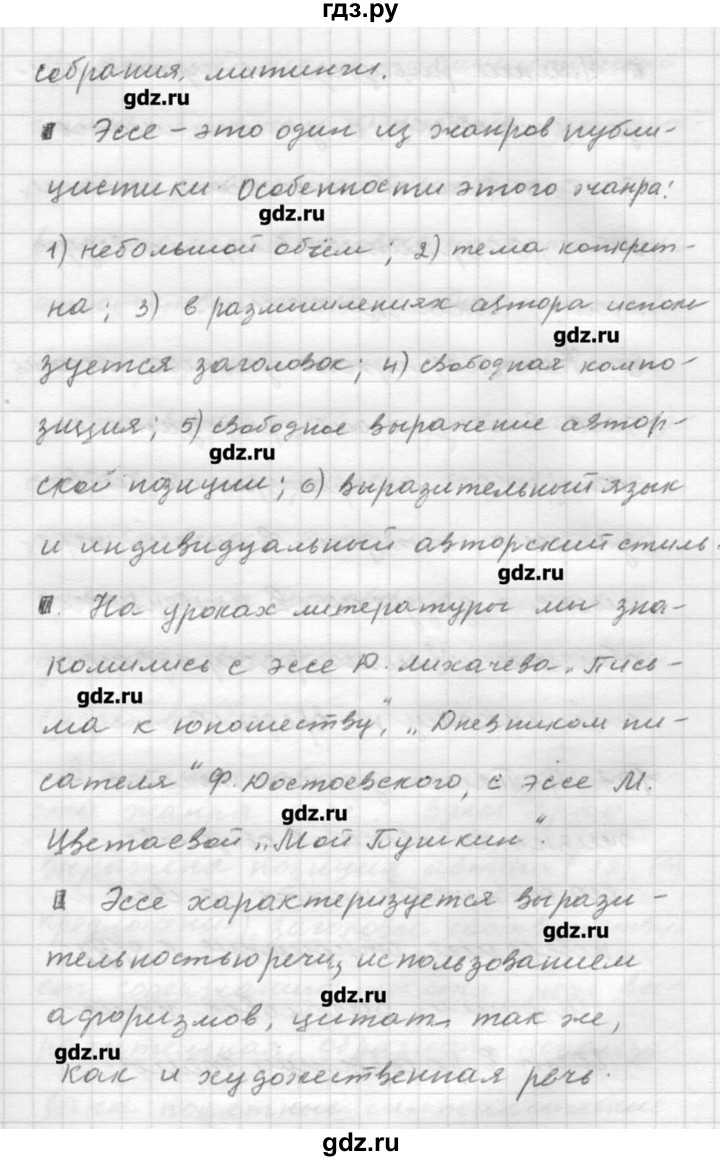 гдз.ру
собрания, митинги.
gdz.ru
I Эссе – это один из жанров публи-
цистики. Особенности этого жанра:
gdz.ru
1) небольшой объём; 2) тема конкрет-
на; 3) в размышлениях автора исполь
gdz.ru
зуется заголовок; 4) свободная компо-
зиция; 5) свободное выражение автор-
gdz.ru
ской позиции; 6) выразительный язык
и индивидуальный авторский стиль.
gdz.ru
II. На уроках литературы мы зна-
комились с эссе Ю. Лихачева „Пись-
gdz.ru
ма к юношеству", „Дневником пи-
сателя" Ф. Достоевского, с эссе М.
gdz.ru
Цветаевой „Мой Пушкин".
Эссе характеризуется вырази-
gdz.ru
тельностью речи, использованием
gdz.ru
афоризмов, цитат, так же,
gdz.ru
как и художественная речь.
gdz.ru